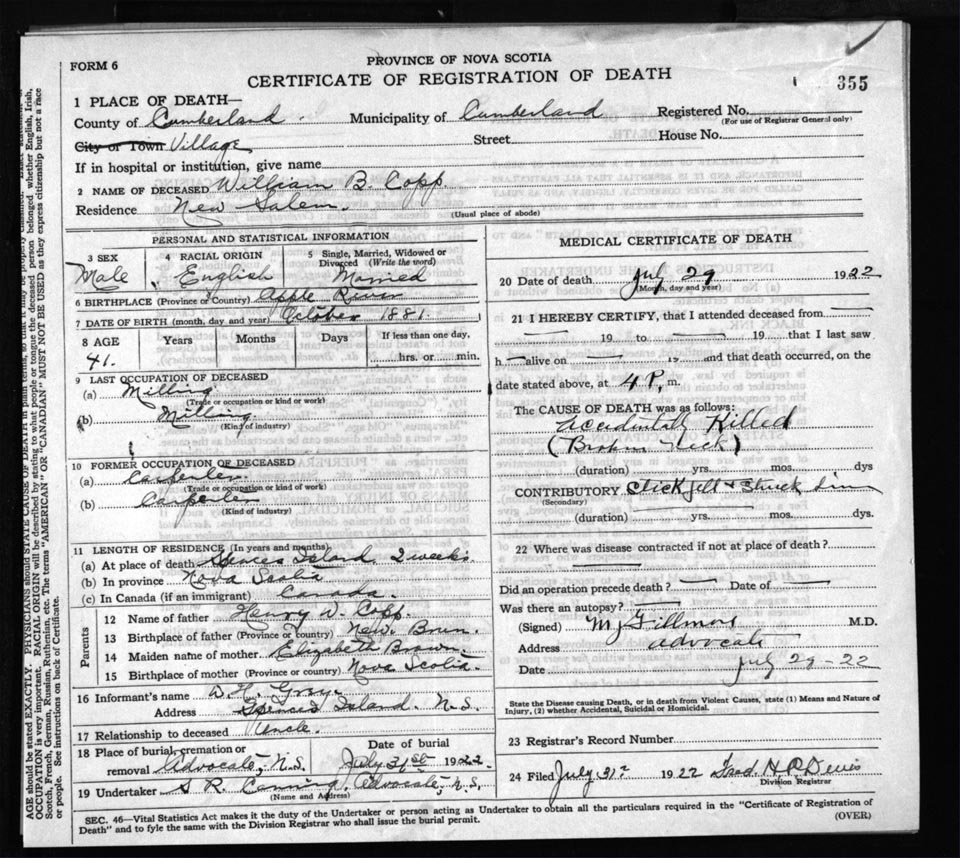 FORM 6
PROVINCE OF NOVA SCOTIA
CERTIFICATE OF REGISTRATION OF DEATH
355
1 PLACE OF DEATH—
County of Cumberland. Municipality of Cumberland Registered No.
(For use of Registrar General only)
City or Town Village Street House No.
If in hospital or institution, give name
2 NAME OF DECEASED William B. Copp.
Residence New Salem.
(Usual place of abode)
PERSONAL AND STATISTICAL INFORMATION
3 SEX 4 RACIAL ORIGIN 5 Single, Married, Widowed or
Divorced (Write the word)
Male English Married
6 BIRTHPLACE (Province or Country) Apple River
7 DATE OF BIRTH (month, day and year) October 1881.
8 AGE Years Months Days If less than one day,
41. hrs. or min.
9 LAST OCCUPATION OF DECEASED
(a) Milling
(Trade or occupation or kind or work)
(b) Milling.
(Kind of industry)
10 FORMER OCCUPATION OF DECEASED
(a) Carpenter
(Trade or occupation or kind of work)
(b) Carpenter
(Kind of industry)
11 LENGTH OF RESIDENCE (In years and months)
(a) At place of death Spencers Island. 2 weeks.
(b) In province Nova Scotia
(c) In Canada (if an immigrant) Canada.
Parents
12 Name of father Henry W. Copp.
13 Birthplace of father (Province or country) New. Brun.
14 Maiden name of mother Elizabeth Brown.
15 Birthplace of mother (Province or country) Nova Scotia.
16 Informant's name W. H. Gray.
Address Spencers Island. N.S.
17 Relationship to deceased Uncle.
18 Place of burial, cremation or Date of burial
removal Advocate, N.S. July 31st 1922.
19 Undertaker S R. Advocate, N.S.
(Name and Address)
MEDICAL CERTIFICATE OF DEATH
20 Date of death July 29 1922
(Month, day and year)
21 I HEREBY CERTIFY, that I attended deceased from
19 to 19 that I last saw
h alive on 19 and that death occurred, on the
date stated above, at 4 P. m.
The CAUSE OF DEATH was as follows:
Accidentally Killed
(Broken Neck)
(duration) yrs. mos. dys
CONTRIBUTORY fell & Struck him
(Secondary)
(duration) yrs. mos. dys.
22 Where was disease contracted if not at place of death?
Did an operation precede death? Date of
Was there an autopsy?
(Signed) M J Fillmore M.D.
Address Advocate
Date July 29-22
State the Disease causing Death, or in death from Violent Causes, state (1) Means and Nature of
Injury, (2) whether Accidental, Suicidal or Homicidal.
23 Registrar's Record Number
24 Filed July 31st 1922 Fred. H. P. Davis
Division Registrar
SEC. 46—Vital Statistics Act makes it the duty of the Undertaker or person acting as Undertaker to obtain all the particulars required in the "Certificate of Registration of
Death" and to fyle the same with the Division Registrar who shall issue the burial permit.
(OVER)
AGE should be stated EXACTLY. PHYSICIANS should STATE CAUSE OF DEATH in plain terms, so that it may be properly
OCCUPATION is very important. RACIAL ORIGIN will be described by stating to what people or tongue the deceased person belonged whether English, Irish,
Scotch, French, German, Russian, Ruthenian, etc. The terms "AMERICAN OR CANADIAN" MUST NOT BE USED as they express citizenship but not a race
or people. See instructions on back of Certificate.